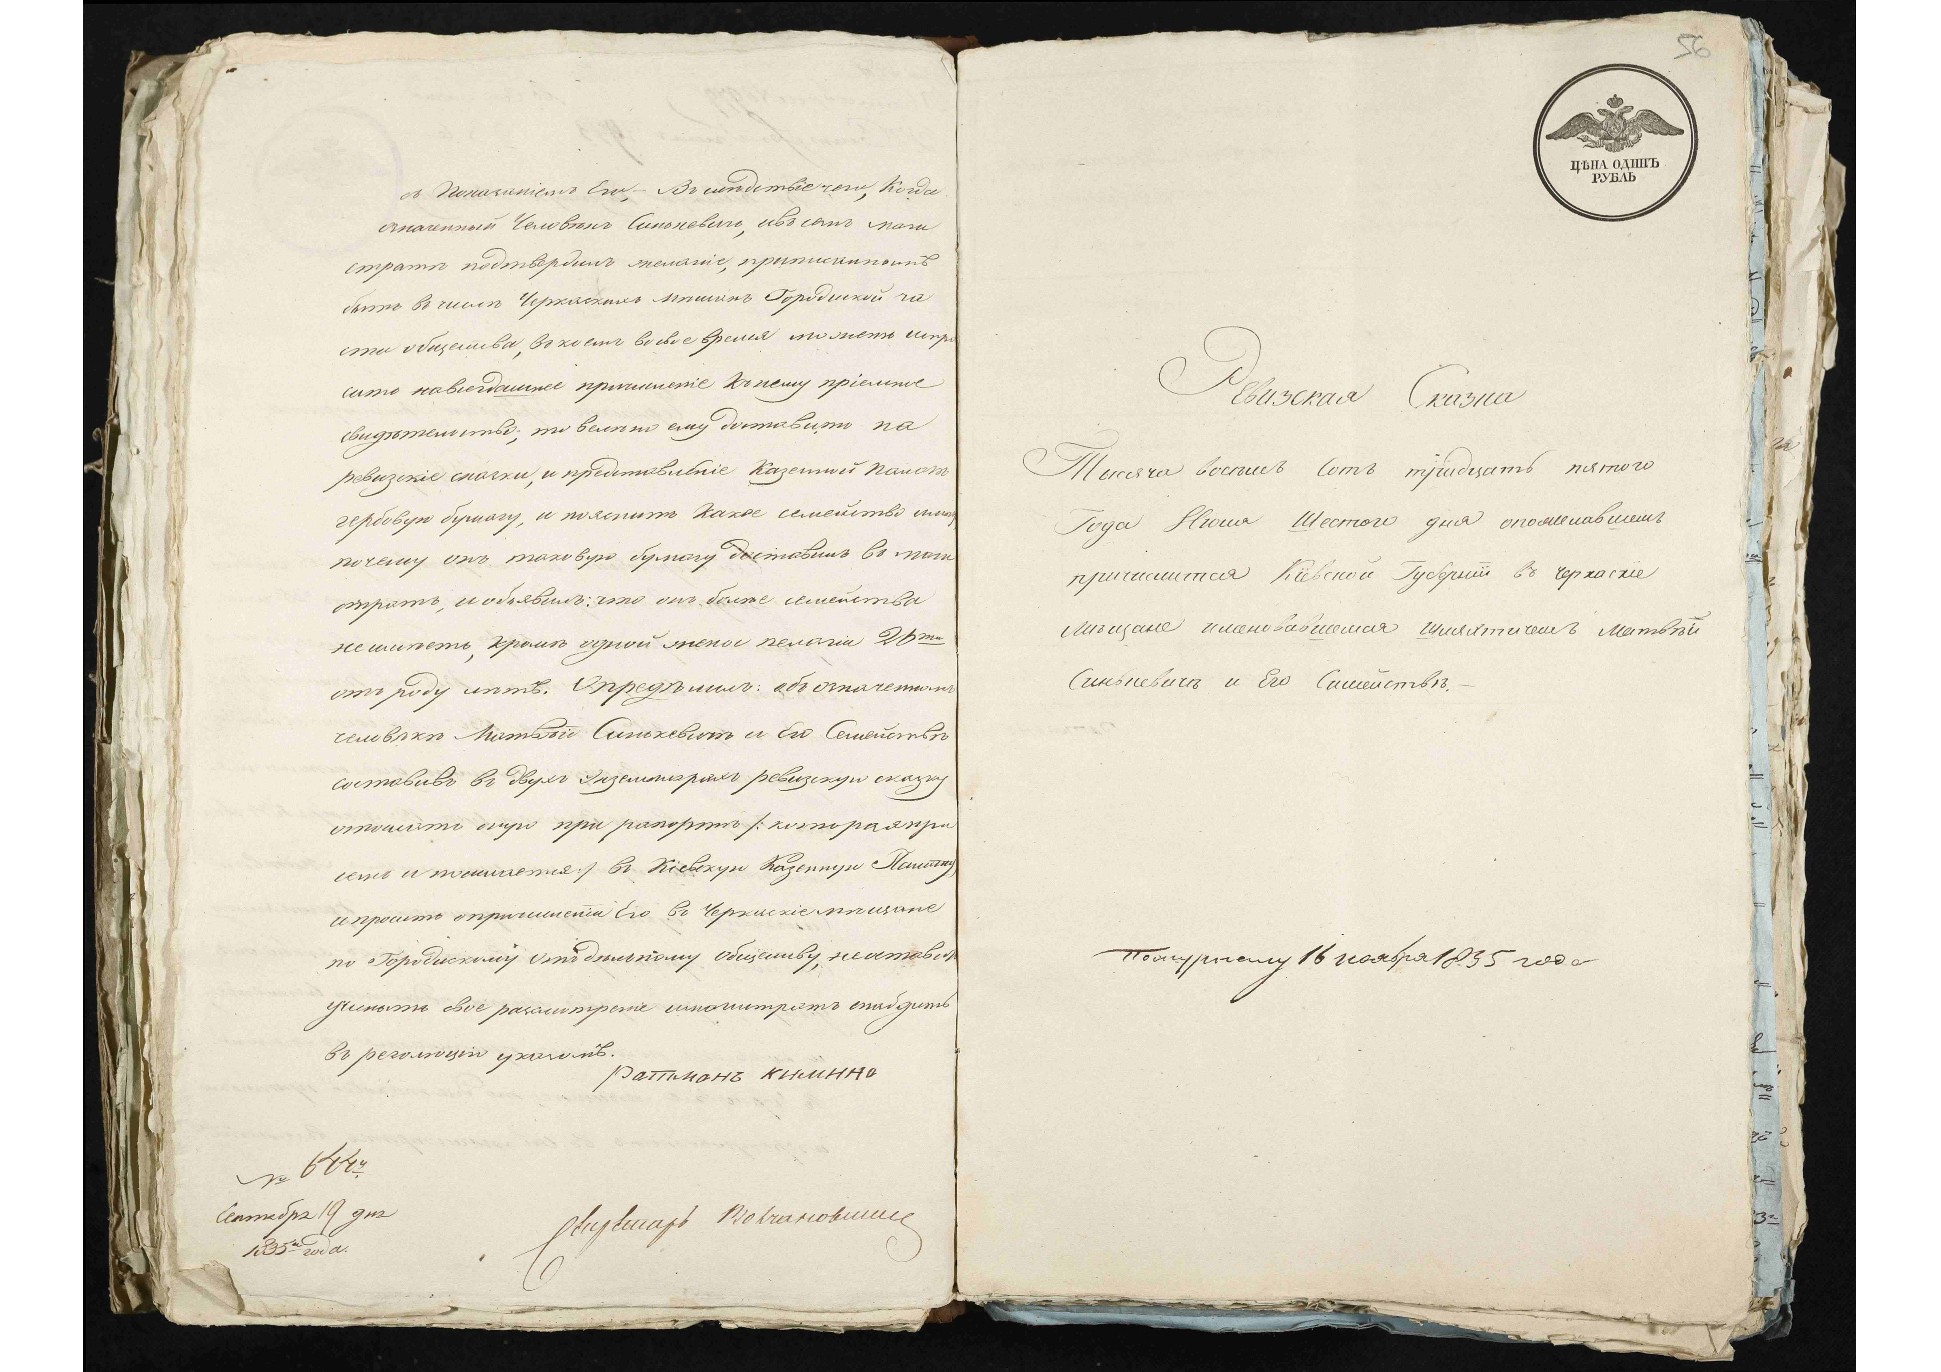 съ Показаніемъ Его, — Въ слѣдствіе чего, Когда
означенный Человѣкъ Синькевичь, въ семъ маги
стратѣ подтвердилъ желаніе, приписаннымъ
быть въ число Черкаскихъ мѣщанъ Городиской ча
сти общества, въ коемъ во свое время можетъ испро
сить навсегдашнее причисленіе къ нему пріемное
свидѣтельство; то велено ему доставить на
ревизскіе сказки, и представленіе Казенной Палатѣ
гербовую бумагу, и пояснить какое семейство
почему онъ таковую бумагу доставилъ въ маги
стратъ, и объявилъ: что онъ болѣе семейства
не имѣетъ, кромѣ одной жены пелагіи 26ти
отъ роду лѣтъ. Определилъ: объ означенномъ
человѣкѣ Матвѣй Синькевичѣ и Его Семействѣ
составивъ въ двухъ экземплярахъ ревизскую сказку
отослать оную при рапортѣ /: которая при
семъ и посылается :/ въ Кіевскую Казенную Палату
и просить о причисленіи Его въ Черкаскіе мѣщане
по Городискому отдѣльному обществу, не оставить
учинить свое разсмотреніе и магистратъ снабдить
въ резолюцію указомъ.
Ратманъ
№ 644
Сентября 19 дня
1835го года.
Секретарь
56
ЦѢНА ОДИНЪ
РУБЛЬ
Ревизская Сказка
Тысяча восемь Сотъ тридцать пятого
Года Июня Шестого дня о пожелавшемъ
причислится Кіевской Губерніи въ Черкаскіе
Мѣщане именовавшемся шляхтичемъ Матвѣй
Синькевичѣ и Его Семействѣ. —
По журналу 16 ноября 1835 года